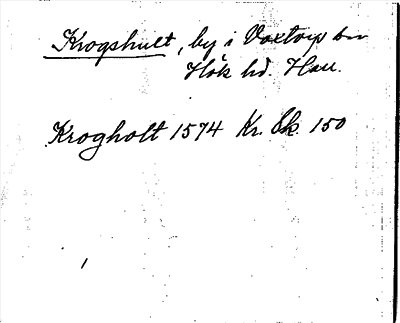 Krogshult, by i Voxtorp sn
Hök hd. Hall.
Krogholt 1574 Kr. Sk. 150